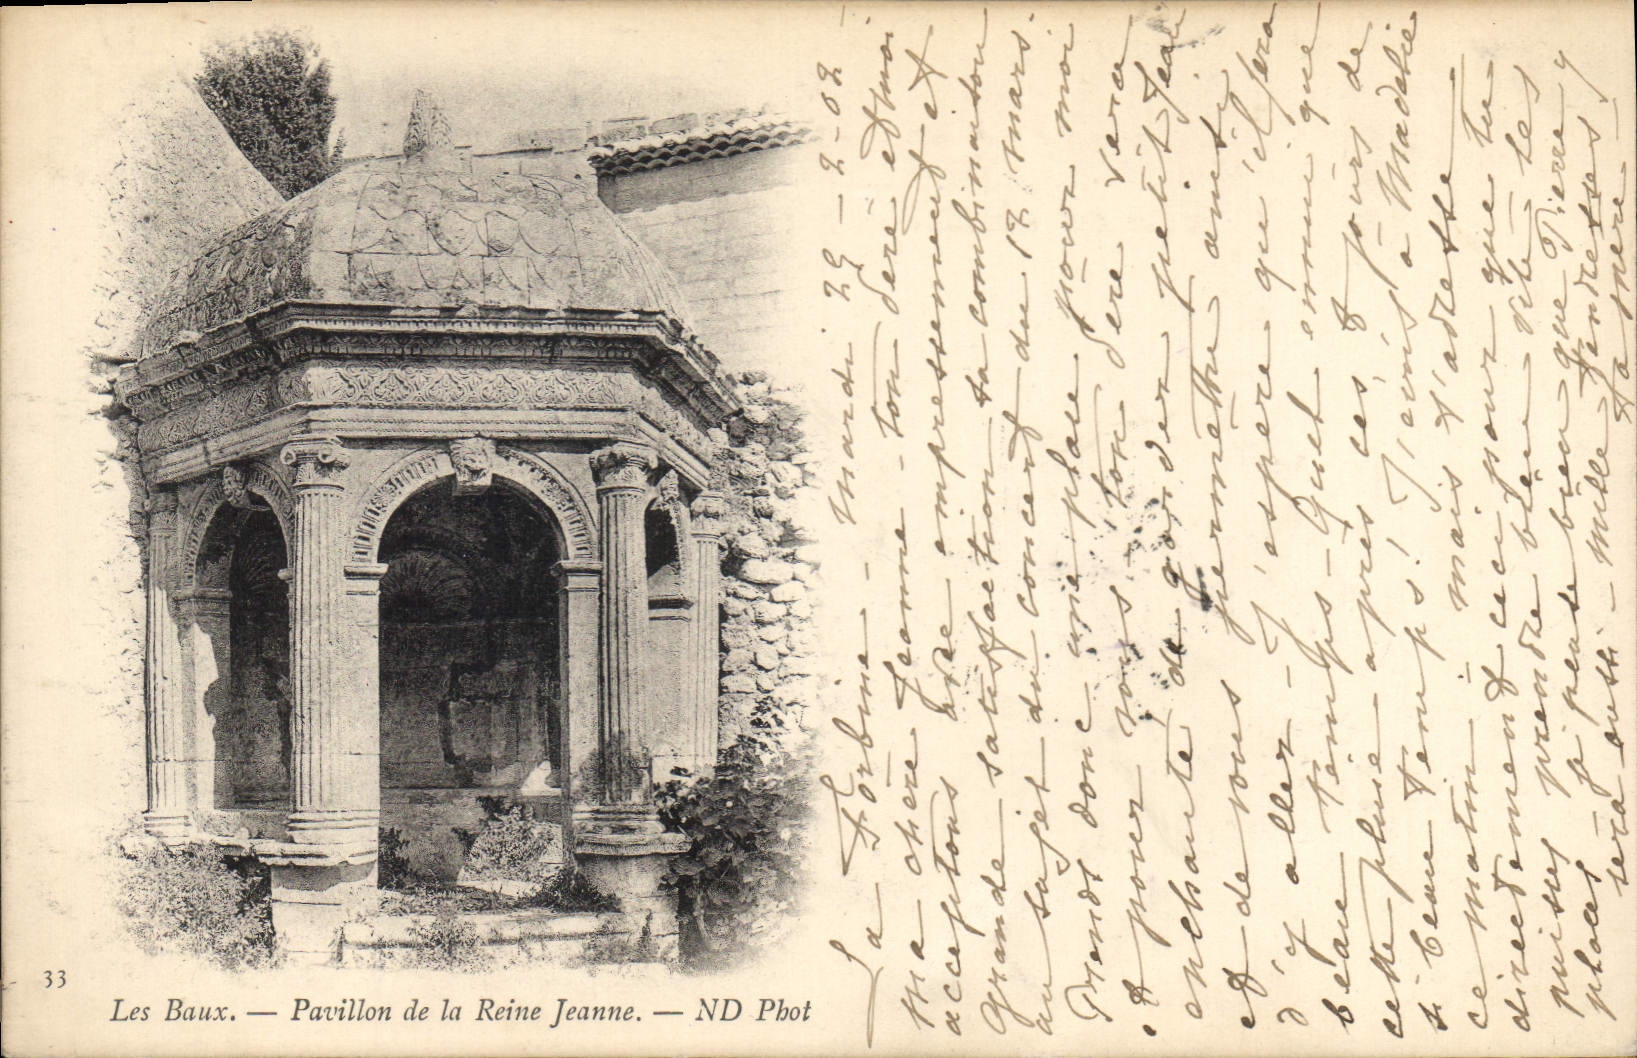 33
Les Baux. — Pavillon de la Reine Jeanne. — ND Phot
La Forbine - Mardi 25-2-02
Ma chère Jeanne - ton père et moi
acceptons avec empressement et
grande satisfaction ta combinaison
au sujet du concert du 17 mars.
Prends donc une place pour moi
et pour vous - ton père sera
enchanté de garder petit Jean
et de vous permettre ainsi
d'y aller - J'espère qu'il fera
beau temps - Quel ennui que
cette pluie après ces 8 jours de
si beau temps! J'écris à Madelie
ce matin mais t'adresse
directement ceci pour que tu
puisses prendre bien vite tes
places - je pense bien que Pierre y
sera aussi - mille tendresses
ta mère -